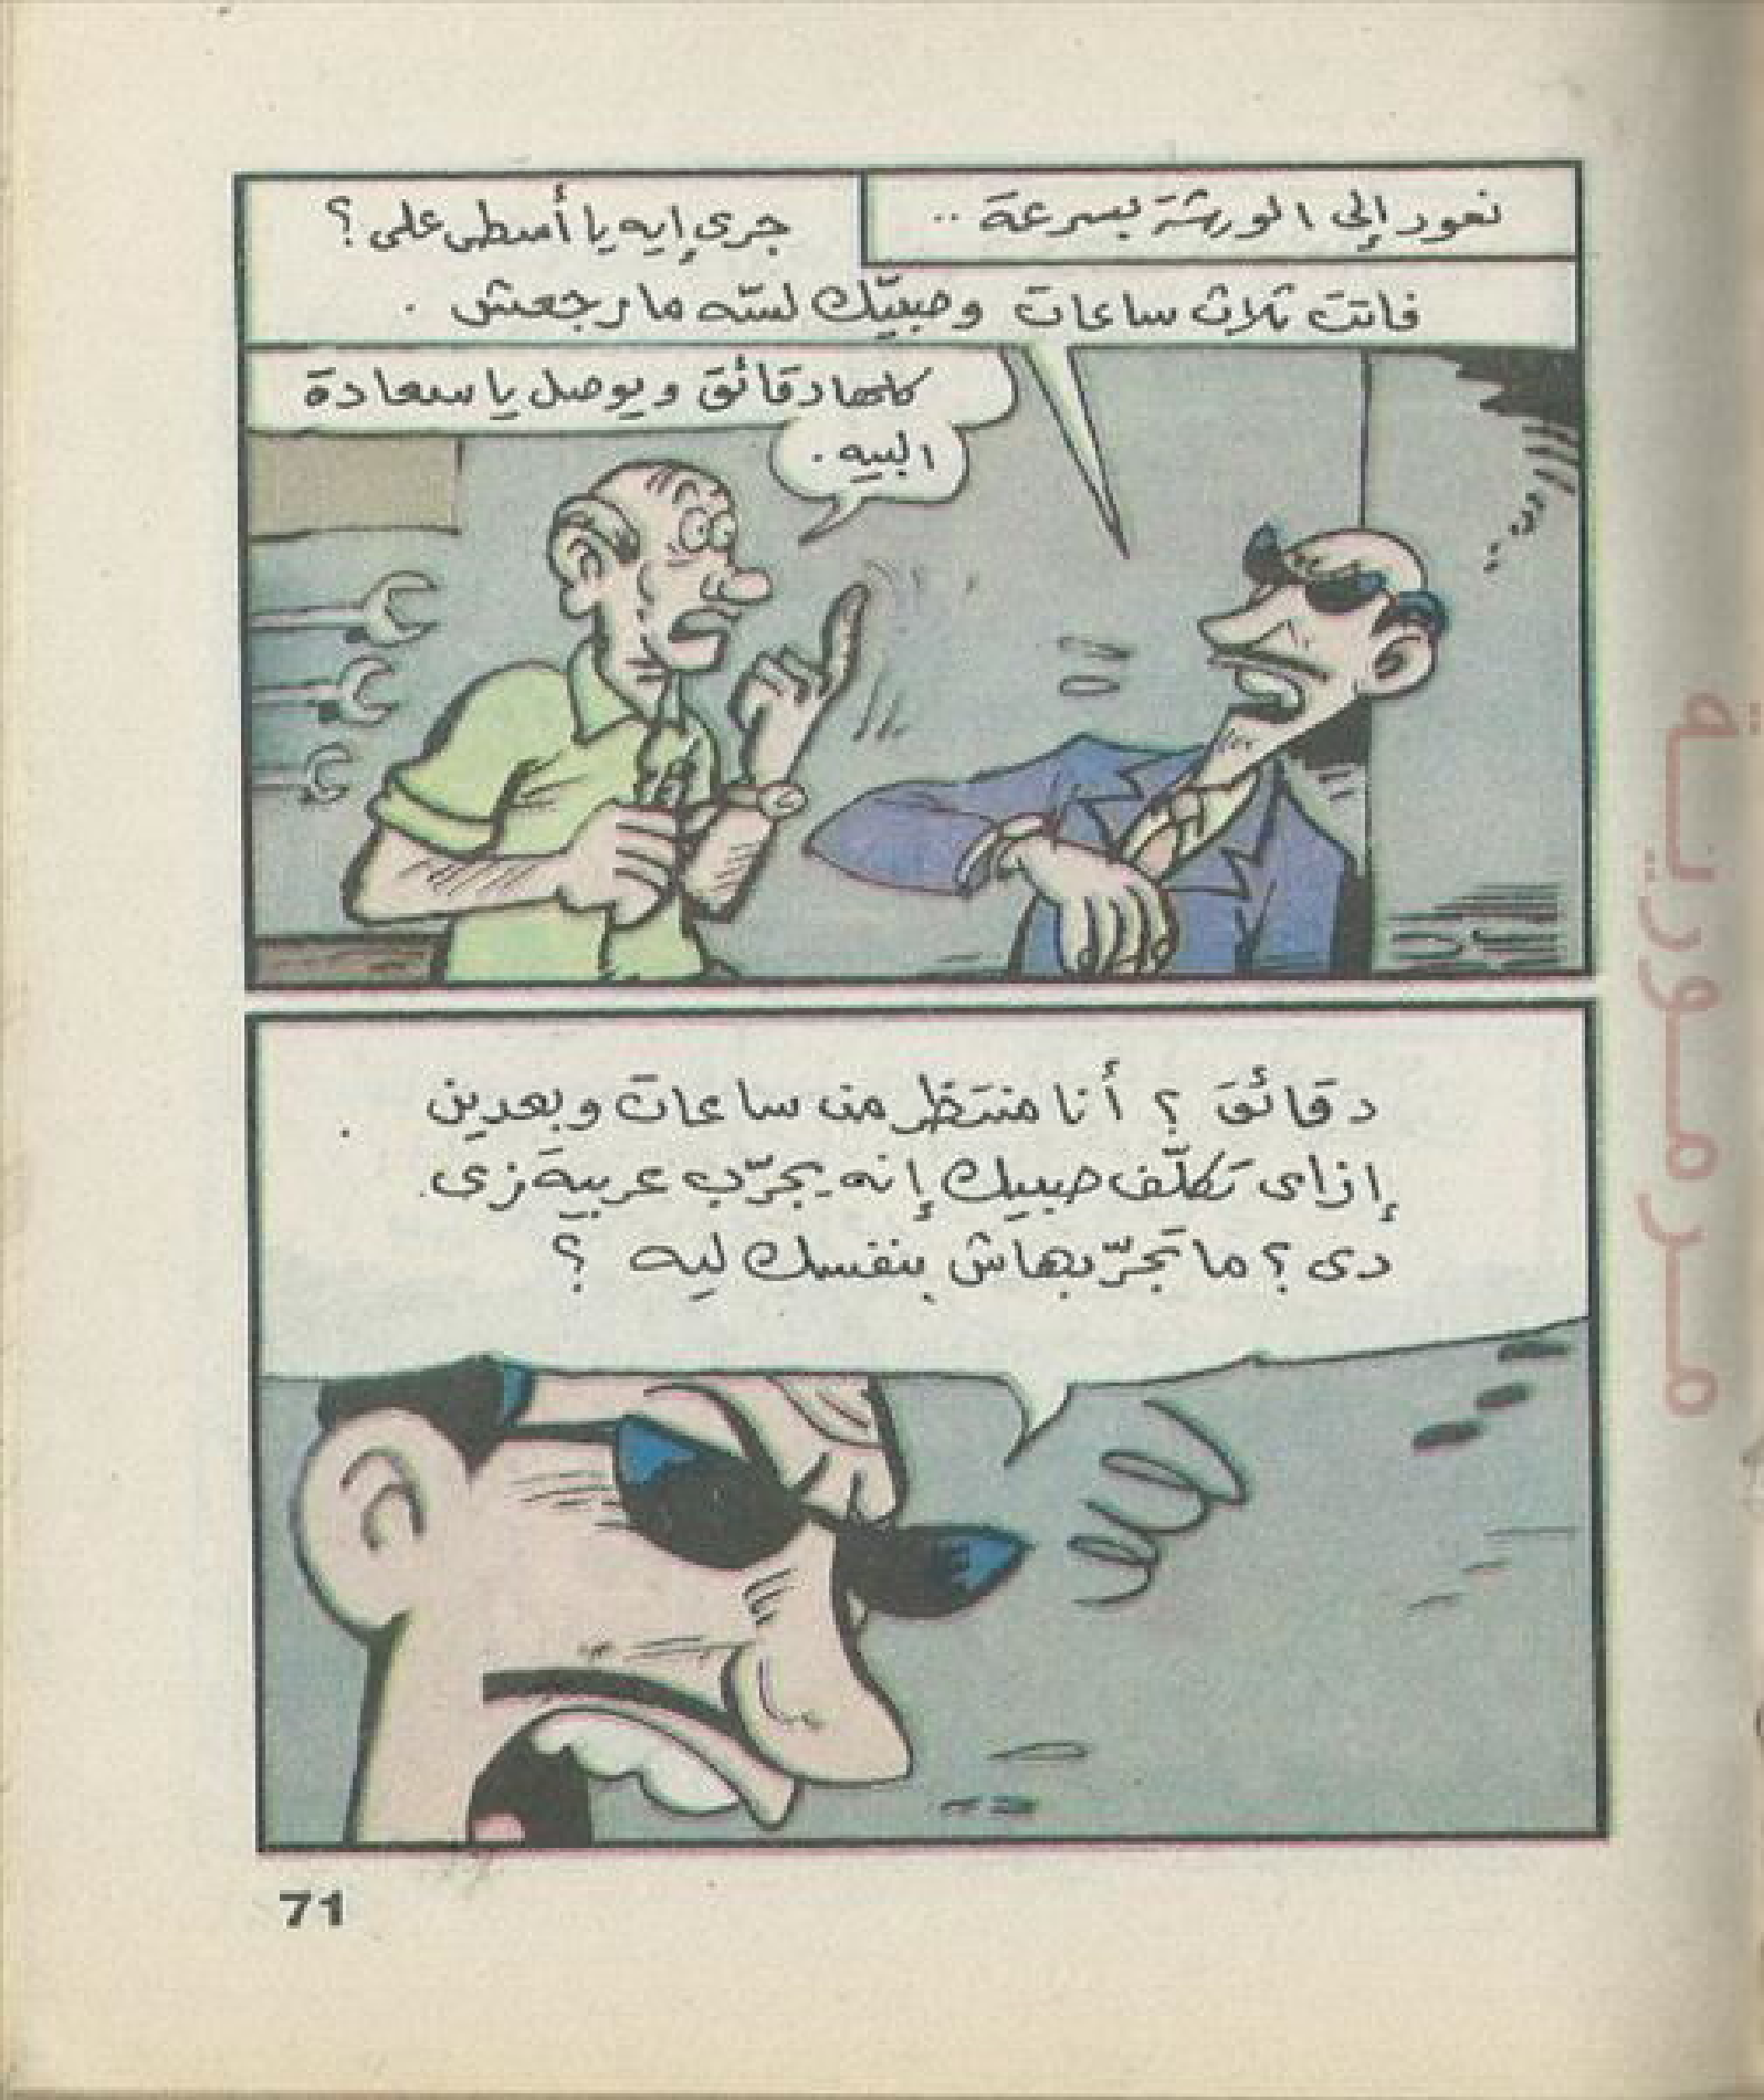 نعود إلى الورشة بسرعة ..
جرى إيه يا أسطى على ؟
فاتت ثلاث ساعات وصبيّك لسّه ما رجعش .
كلها دقائق ويوصل يا سعادة
البيه .
دقائق ؟ أنا منتظر من ساعات وبعدين
إزاى تكلّف صبيك إنه يجرّب عربية زى
دى ؟ ما تجرّبهاش بنفسك ليه ؟
71